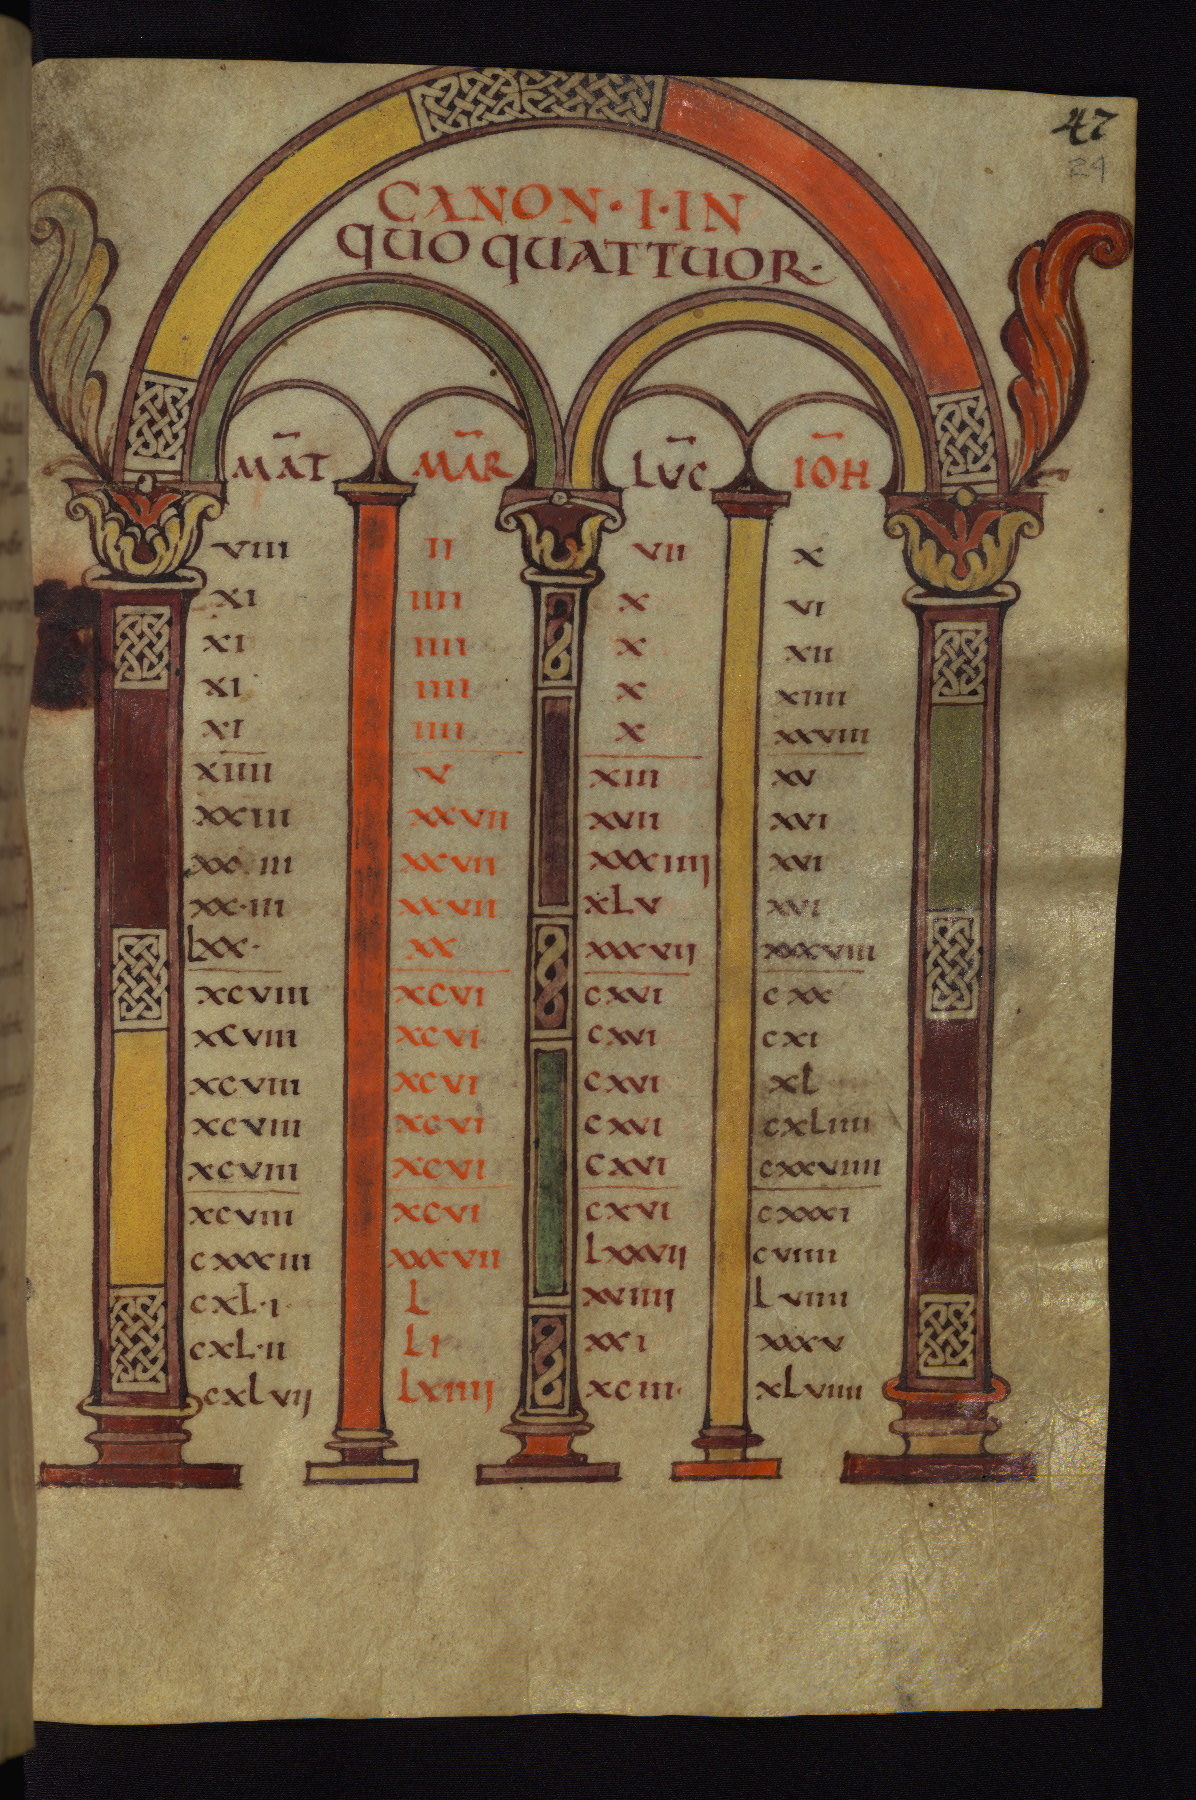 47
24
CANON · I · IN
QUO QUATTUOR ·
MAT MAR LUC IOH
VIII II VII X
XI IIII X VI
XI IIII X XII
XI IIII X XIIII
XI IIII X XXVIII
XIIII V XIII XV
XXIII XXVII XVII XVI
XX III XXVII XXXIIII XVI
XX·III XXVII XLV XVI
LXX· XX XXXVII XXXVIII
XCVIII XCVI CXVI CXX
XCVIII XCVI CXVI CXI
XCVIII XCVI CXVI XL
XCVIII XCVI CXVI CXLIIII
XCVIII XCVI CXVI CXXVIIII
XCVIII XCVI CXVI CXXXI
CXXXIII XXXVII LXXVII CVIIII
CXL·I· L XVIIII LVIIII
CXL·II LI XXI XXXV
CXLVII LXIIII XCIII· XLVIIII